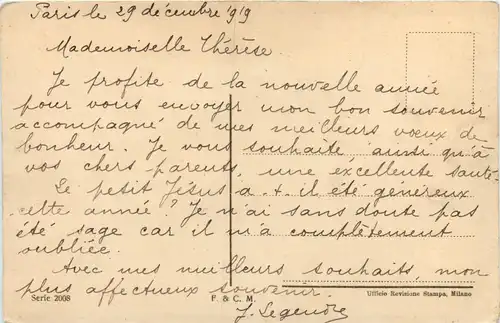 Paris le 29 décembre 1919
Mademoiselle Thérèse.
Je profite de la nouvelle année
pour vous envoyer mon bon souvenir
accompagné de mes meilleurs voeux de
bonheur. Je vous souhaite, ainsi qu'à
vos chers parents, une excellente santé.
Le petit Jésus a-t-il été généreux
cette année? Je n'ai sans doute pas
été sage car il m'a complètement
oubliée.
Avec mes meilleurs souhaits, mon
plus affectueux souvenir.
J. Legendre
Serie 2008 F. & C. M. Ufficio Revisione Stampa, Milano